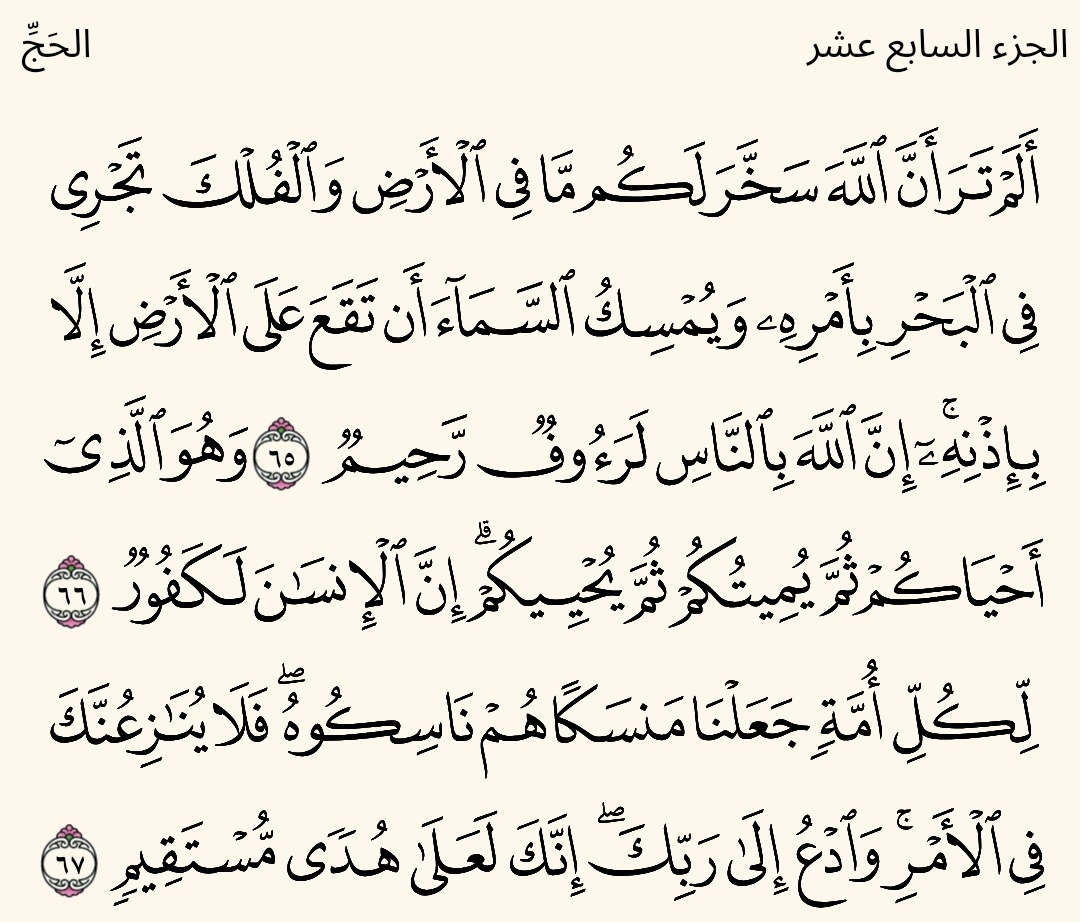 الجزء السابع عشر
الحَجِّ
أَلَمْ تَرَ أَنَّ ٱللَّهَ سَخَّرَ لَكُم مَّا فِى ٱلْأَرْضِ وَٱلْفُلْكَ تَجْرِى
فِى ٱلْبَحْرِ بِأَمْرِهِۦ وَيُمْسِكُ ٱلسَّمَآءَ أَن تَقَعَ عَلَى ٱلْأَرْضِ إِلَّا
بِإِذْنِهِۦٓ ۚ إِنَّ ٱللَّهَ بِٱلنَّاسِ لَرَءُوفٌ رَّحِيمٌ ٦٥ وَهُوَ ٱلَّذِىٓ
أَحْيَاكُمْ ثُمَّ يُمِيتُكُمْ ثُمَّ يُحْيِيكُمْ ۗ إِنَّ ٱلْإِنسَـٰنَ لَكَفُورٌ ٦٦
لِّكُلِّ أُمَّةٍ جَعَلْنَا مَنسَكًا هُمْ نَاسِكُوهُ ۖ فَلَا يُنَـٰزِعُنَّكَ
فِى ٱلْأَمْرِ ۚ وَٱدْعُ إِلَىٰ رَبِّكَ ۖ إِنَّكَ لَعَلَىٰ هُدًى مُّسْتَقِيمٍ ٦٧